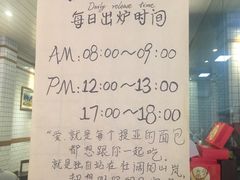 Daily release time.
每日出炉时间
AM:08:00~09:00
PM:12:00~13:00
17:00~18:00
"爱,就是每个搜亚的面包
都想跟你一起吃,
就是独自站在壮阔的山岚